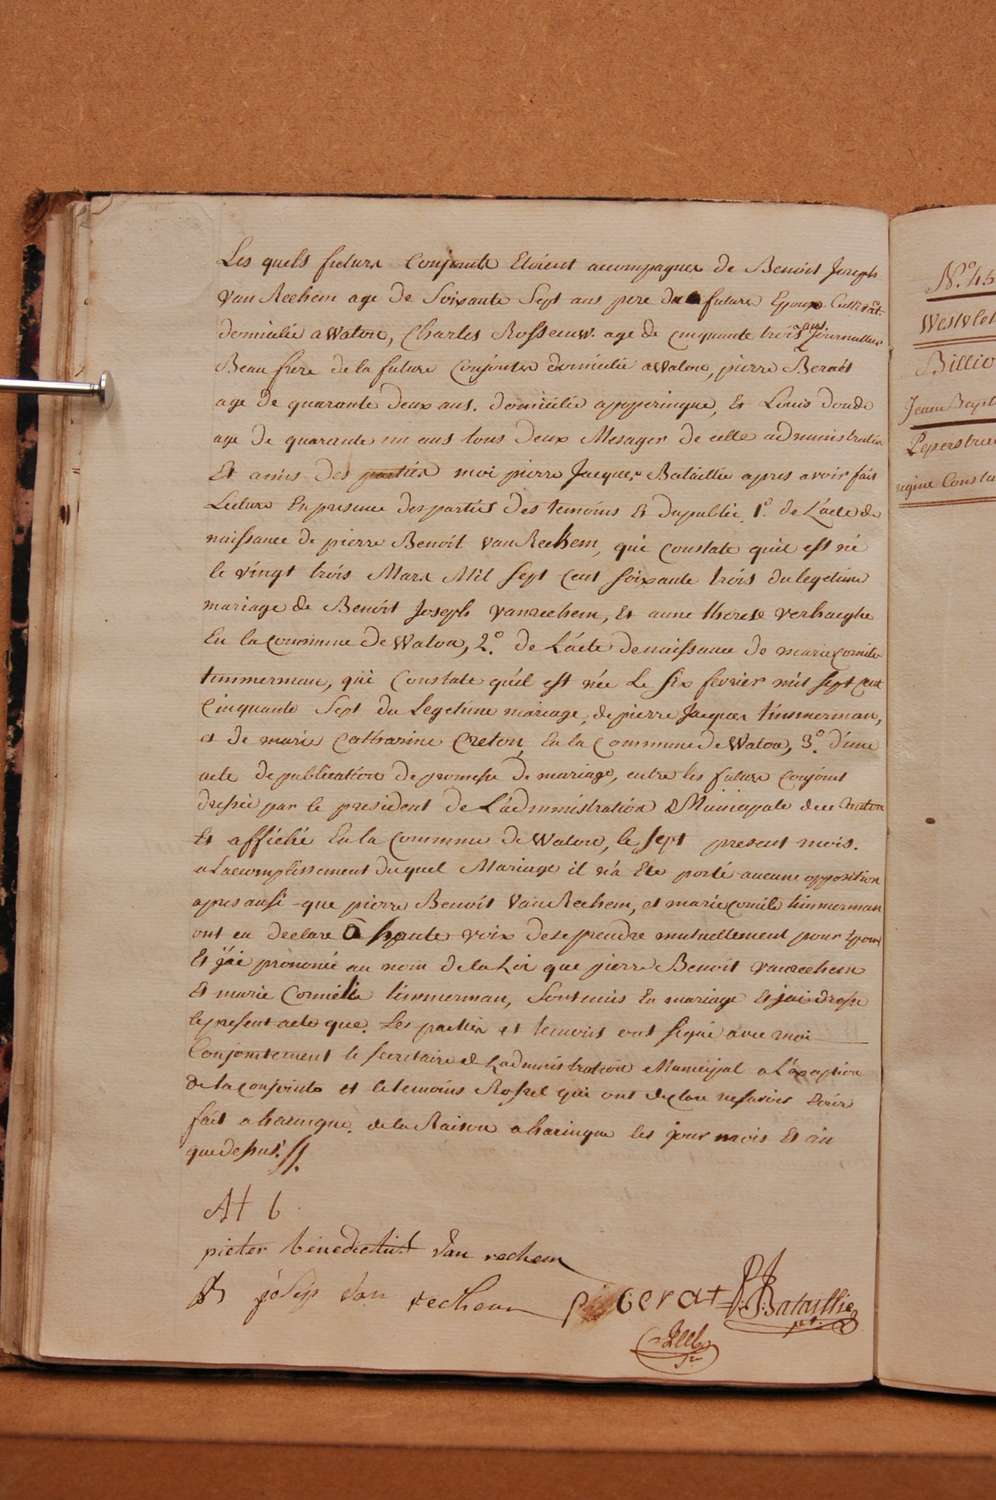 Les quels futurs Conjoints Etoient acompagner de Benoit Joseph
Van Rechem age de Soixante Sept ans pere du future Epoux Cultivat.
domicilie a Watou, Charles Rosseeuw. age de cinquante trois ans Journallier
Beau frere de la future Conjointe domicilie a Watou, pierre Berat
age de quarante deux ans. domicilie a popperingue, Et Louis doude
age de quarante un ans tous deux Mesager de cette administration
Et amis des parties moi pierre Jacques Bataillie apres avoir fait
Lecture En presence des parties des temoins Et du public, 1º. de L'acte de
naissance de pierre Benoit Van Rechem, qui Constate quil est né
le vingt trois Mars Mil Sept Cent Soixante trois du legetime
mariage de Benoit Joseph vanrechem, Et anne therese verhaeghe
En la Commune de Watou, 2º. de L'acte de naissance de marie Cornile
timmerman, qui Constate quil est née Le Six fevrier mil Sept Cent
Cinquante Sept du Legetime mariage, de pierre Jacques timmerman,
et de marie Catharine Creton, En la Commune de Watou, 3º. d'une
acte de publication de promesse de mariage, entre les future conjoint
dressé par le president de L'administration Municipale de ce Canton
Et affiché En la Commune de Watou, le Sept present mois.
a L'acomplissement du quel Mariage il n'a Ete porté aucune opposition
apres ausi que pierre Benoit Van Rechem, et marie Cornile timmerman
ont eu declare a haute voix de se prendre mutuellement pour Epoux
Et j'ai prononcé au nom de la Loi que pierre Benoit vanrechem
Et marie Cornile timmerman, Sont unis En mariage Et j'ai dressé
le present acte que. Les parties et temoins ont signé avec moi
Conjointement le secretaire de L'administration Municipal a L'exception
de la Conjointe et le temoins Rossel qui ont declare ne savoir Ecrire
fait a haringue. de la Maison a haringue les jour mois Et an
que dessus.
pieter benedictus Van rechem
josep van rechem
p berat
P J Bataillie
Nº 45
Westvlet
Billio
Jean Bapt
Peperstrae
regine Consta